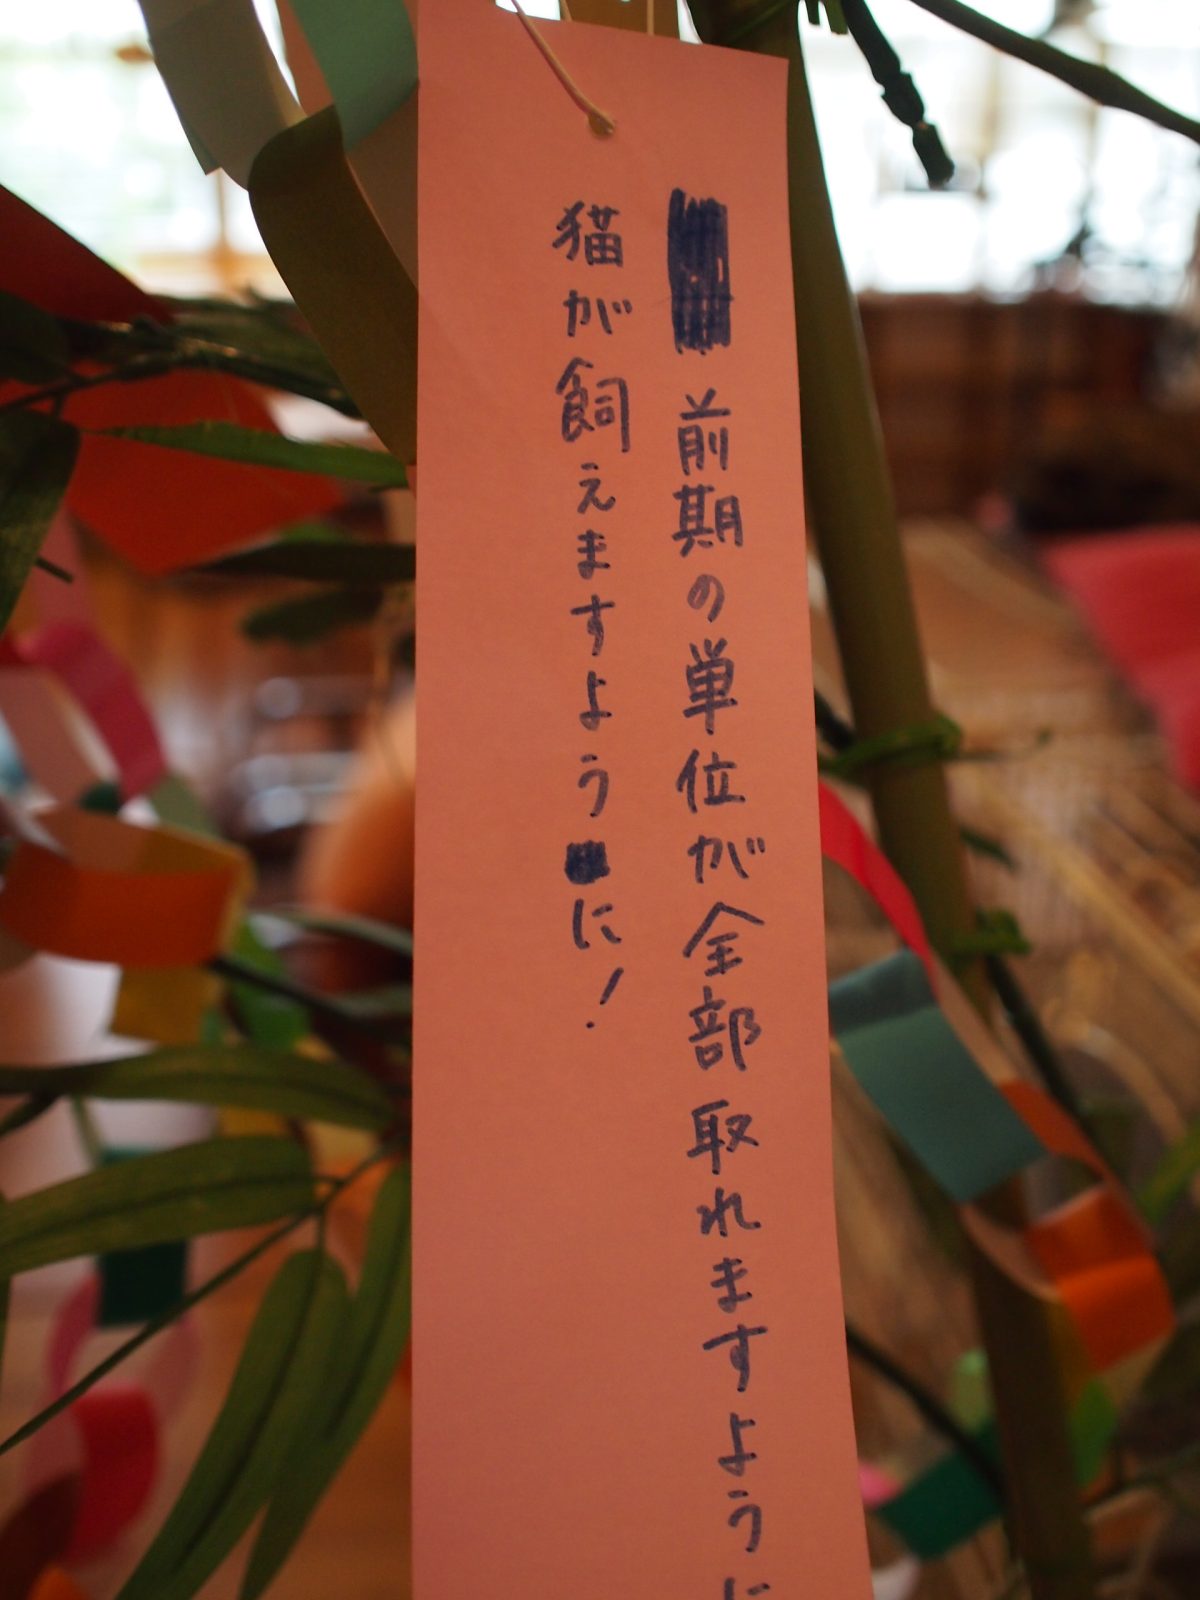 前期の単位が全部取れますように
猫が飼えますように！